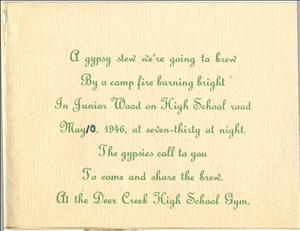 A gypsy stew we're going to brew
By a camp fire burning bright
In Junior Wood on High School road
May 10, 1946, at seven-thirty at night.
The gypsies call to you
To come and share the brew.
At the Deer Creek High School Gym.